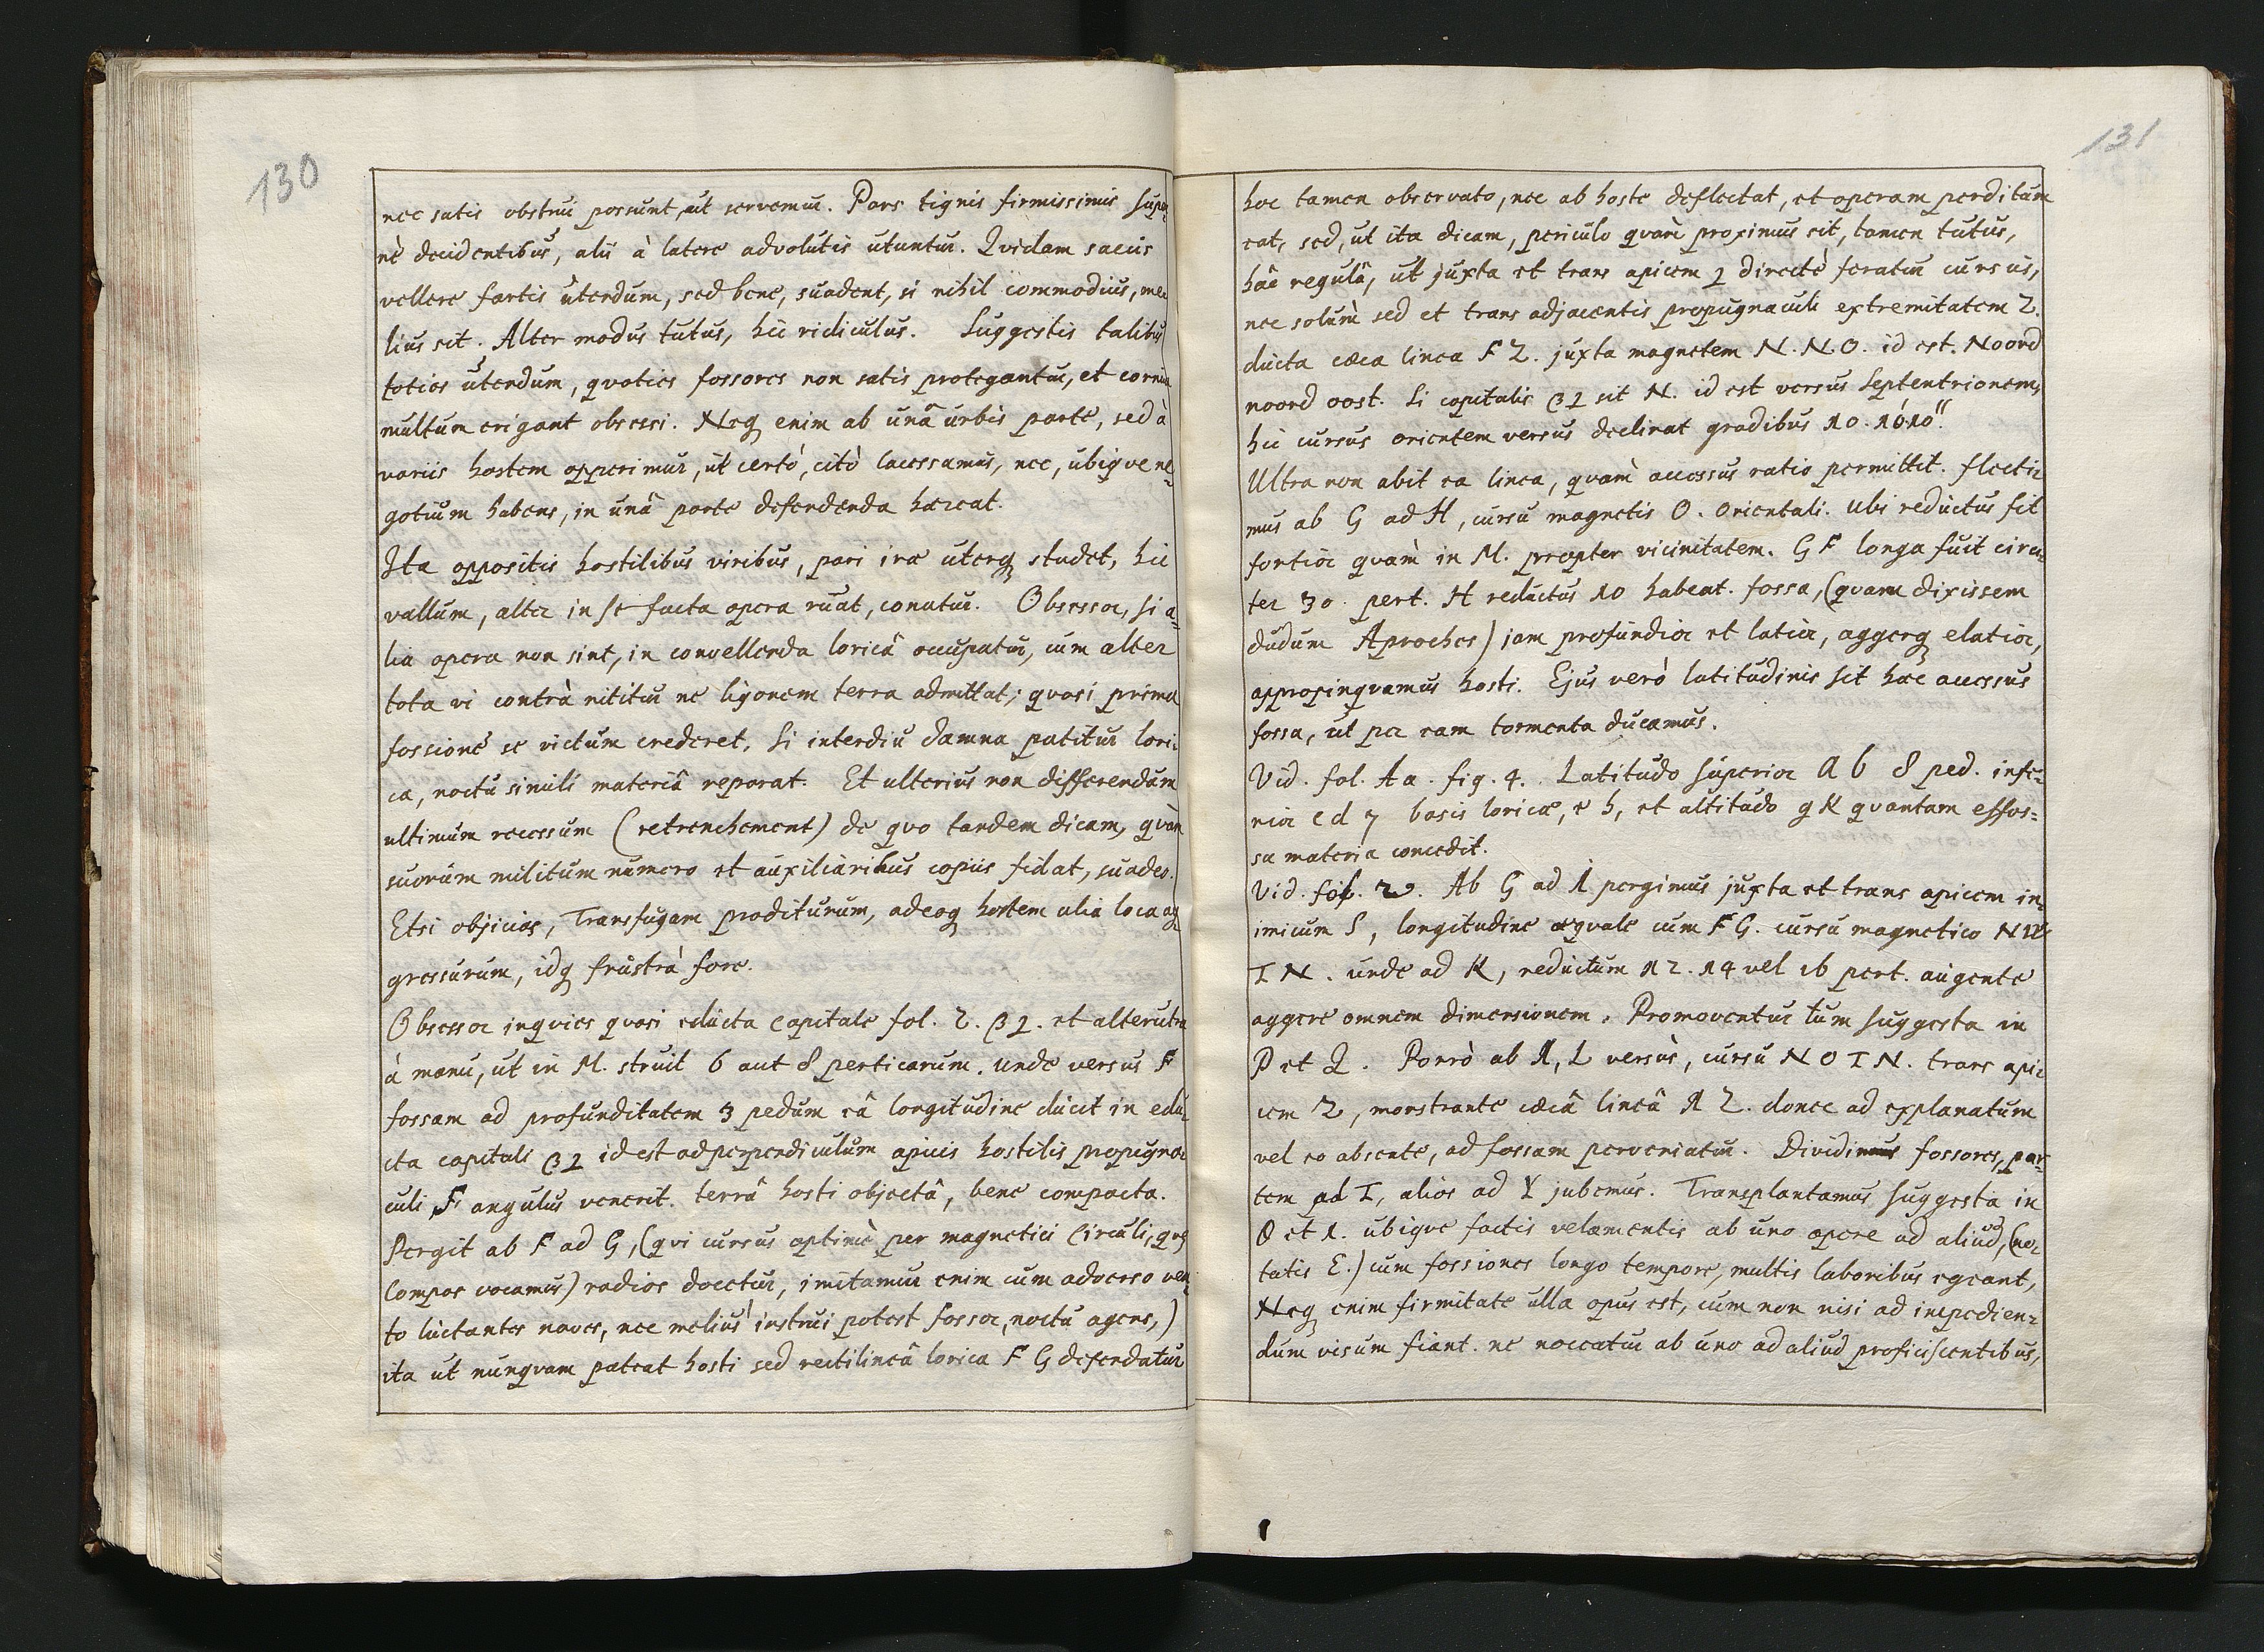 130
nec satis obstrui possunt, ut servemur. Pars tignis firmissimis supe¬
nè decidentibus, alii à latere advolutis utuntur. Qvidam saccis
vellere fartis utendum, sed bene, suadent, si nihil commodius, me¬
lius sit. Alter modus tutus, hic ridiculus. Suggestis talibus
toties utendum, qvoties fossores non satis protegantur, et cornua
multum erigant obsessi. Neq enim ab unâ urbis parte, sed à
variis hostem opperimur, ut certò, citò lacessamus, nec, ubiqve ne¬
gotium habens, in unâ parte defendenda haereat.
Ita oppositis hostilibus viribus, pari ira uterq studet, hic
vallum, alter in se facta opera ruat, conatur. Obsessor, si a¬
lia opera non sint, in convellenda loricâ occupatur, cum alter
tota vi contrà nititur ne ligonem terra admittat; qvasi prima
fossione se victum crederet. Si interdiu damna patitur lori¬
ca, noctu simili materiâ reparat. Et ulterius non differendum
ultimum recessum (retrenchement) de qvo tandem dicam, qvam
suorum militum numero et auxiliaribus copiis fidat, suadeo.
Etsi objicias, Transfugam proditurum, adeoq hostem alia loca ag¬
gressurum, idq frustrà fore.
Obsessor inqvies qvasi educta capitale fol. 2. β 2. et alterutra
à manu, ut in M. struit 6 aut 8 perticarum. unde versus F
fossam ad profunditatem 3 pedum eâ longitudine ducit in edu¬
cta capitali β 2 id est ad perpendiculum apicis hostilis propugna¬
culi, F angulus venerit. terrâ hosti objectâ, bene compacta.
Pergit ab F ad G, (qvi cursus optimè per magnetici circuli, qvos
Compas vocamus) radios docetur, imitamur enim cum adverso ven¬
to luctantes naves, nec melius instrui potest fossor, noctu agens,)
ita ut nunqvam pateat hosti sed rectilineâ lorica F G defendatur
131
hoc tamen observato, nec ab hoste deflectat, et operam perditum
eat, sed, ut ita dicam, periculo qvàm proximus sit, tamen tutus,
hâc regulâ, ut juxta et trans apicem 2 directè feratur cursus,
nec solùm sed et trans adjacentis propugnaculi extremitatem 2.
ducta caeca linea F 2. juxta magnetem N. N. O. id est. Noord
noord oost. Si capitalis β 2 sit N. id est versus Septentrionem,
hic cursus orientem versus declinat gradibus 10. 10' 10''.
Ultra non abit ea linea, qvàm accessus ratio permittit. flecti¬
mus ab G ad H, cursu magnetis O. orientali. ubi reductus fit
fortior qvàm in M. propter vicinitatem. G F longa fuit circi¬
ter 30. pert. H reductus 10 habeat. fossa, (qvam dixissem
dudum Aproches) jam profundior et latior, aggerq elatior,
appropinqvamus hosti. Ejus verò latitudinis sit haec accessus
fossa, ut per eam tormenta ducamus.
Vid. fol. Aa. fig. 4. Latitudo superior a b 8 ped. infe¬
rior c d 7 basis loricae, e h, et altitudo g K qvantam effos¬
sa materia concedit.
Vid. fol. 2. Ab G ad I pergimus juxta et trans apicem in¬
imicum S, longitudine aeqvale cum F G. cursu magnetico NW
T N. unde ad K, reductum 12. 14 vel 16 pert. augente
aggere omnem dimensionem. Promoventur tum suggesta in
P et Q. Porrò ab I, L versùs, cursu N O T N. trans api¬
cem 2, monstrante caecâ lineâ I 2. donec ad explanatum
vel eo absente, ad fossam perveniatur. Dividimus fossores, par¬
tem ad T, alios ad Y jubemus. Transplantamus suggesta in
O et I. ubiqve factis velamentis ab uno opere ad aliud, (no¬
tatis E.) cum fossiones longo tempore, multis laboribus egeant,
Neq enim firmitate ulla opus est, cum non nisi ad impedien¬
dum visum fiant. ne noceatur ab uno ad aliud proficiscentibus,